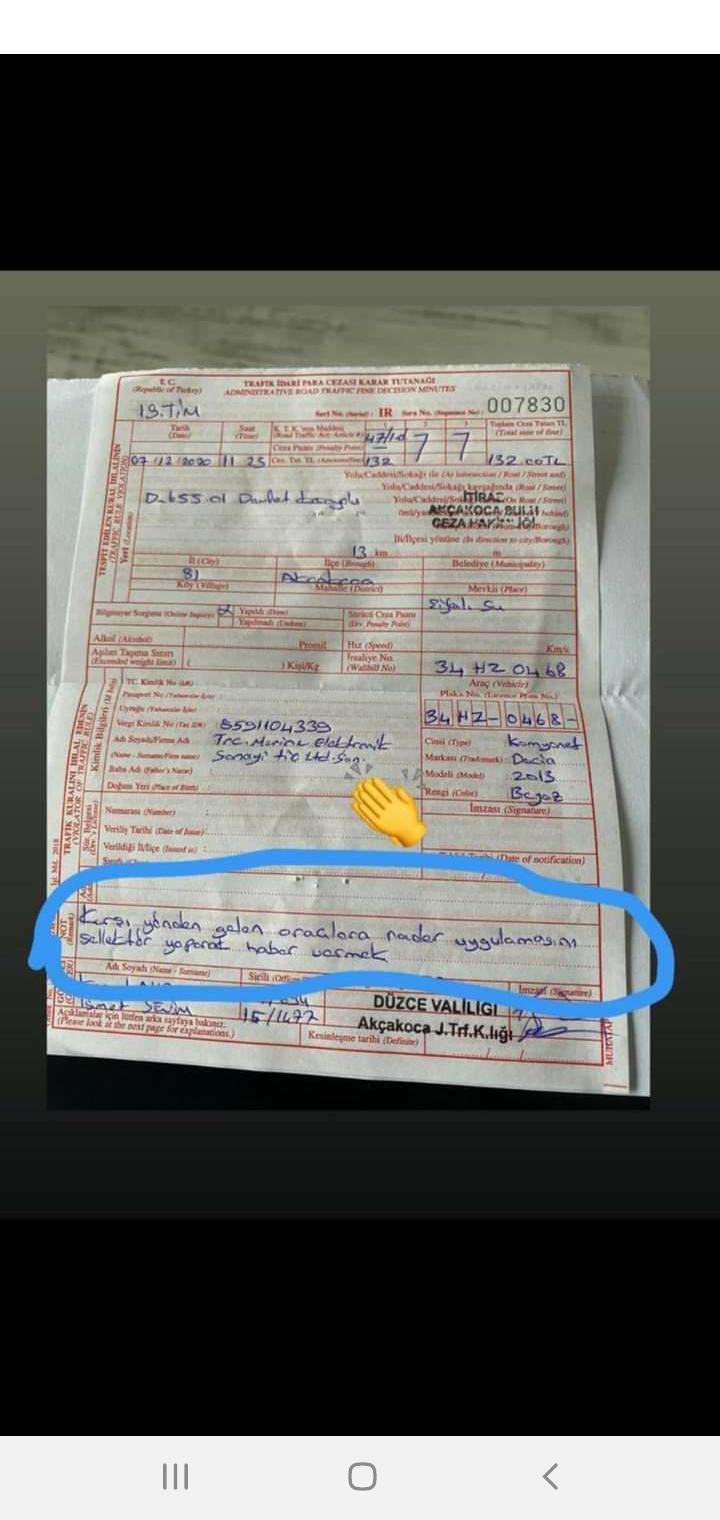 T.C.
(Republic of Turkey)
TRAFİK İDARİ PARA CEZASI KARAR TUTANAĞI
ADMINISTRATIVE ROAD TRAFFIC FINE DECISION MINUTES
Seri No. (Serial) : IR Sıra No. (Sequence No) : 007830
Tarih (Date)
Saat (Time)
K. T. K.'nun Maddesi
(Road Traffic Act. Article #) 47/1d
Ceza Puanı (Penalty Point)
Toplam Ceza Tutarı TL
(Total sum of fine)
07/12/2020 11 25 132 132.00TL
TESPİT EDİLEN KURAL İHLALİNİN
(TRAFFIC RULE VIOLATION)
Yeri (Location)
Yolu/Caddesi/Sokağı ile (At intersection / Road / Street and)
Yolu/Caddesi/Sokağı kavşağında (Road / Street)
D.655.01 Devlet
İTİRAZ
AKÇAKOCA SULH
CEZA HAKİMLİĞİ
İli/İlçesi yönüne (In direction to city/Borough)
13 km m
İl (City)
İlçe (Borough)
Belediye (Municipality)
81 Akçakoca
Köy (Village)
Mahalle (District)
Mevkii (Place)
Şifalı Su
Bilgisayar Sorgusu (Online Inquiry)
Yapıldı (Done)
Yapılmadı (Undone)
Sürücü Ceza Puanı
(Drv. Penalty Point)
Alkol (Alcohol) Promil
Hız (Speed) Km/s
Aşılan Taşıma Sınırı
(Exceeded weight limit) ( ) Kişi/Kg
İrsaliye No.
(Waybill No)
34 HZ 0468
Araç (Vehicle)
Plaka No. (License Plate No.)
34 HZ-0468-
TRAFİK KURALINI İHLAL EDENİN
(VIOLATOR OF TRAFFIC RULE)
T.C. Kimlik No
Passaport No
Uyruğu
Vergi Kimlik No 8591104339
Adı Soyadı/Firma Adı Trc. Marine Elektronik
(Name - Surname/Firm name) Sanayi tic ltd. Şan.
Baba Adı (Father's Name)
Doğum Yeri (Place of Birth)
Cinsi (Type) Kamyonet
Markası (Trademark) Dacia
Modeli (Model) 2013
Rengi (Color) Beyaz
İmzası (Signature)
Numarası (Number)
Veriliş Tarihi (Date of Issue)
Verildiği İl/İlçe (Issued in)
(Date of notification)
Karşı yönden gelen araçlara radar uygulamasını
sellektör yaparak haber vermek
Adı Soyadı (Name - Surname)
Sicili
İmzası (Signature)
İsmet SEVİM 15/1477
DÜZCE VALİLİĞİ
Akçakoca J.Trf.K.lığı
Açıklamalar için lütfen arka sayfaya bakınız.
(Please look at the next page for explanations.)
Kesinleşme tarihi (Definite)